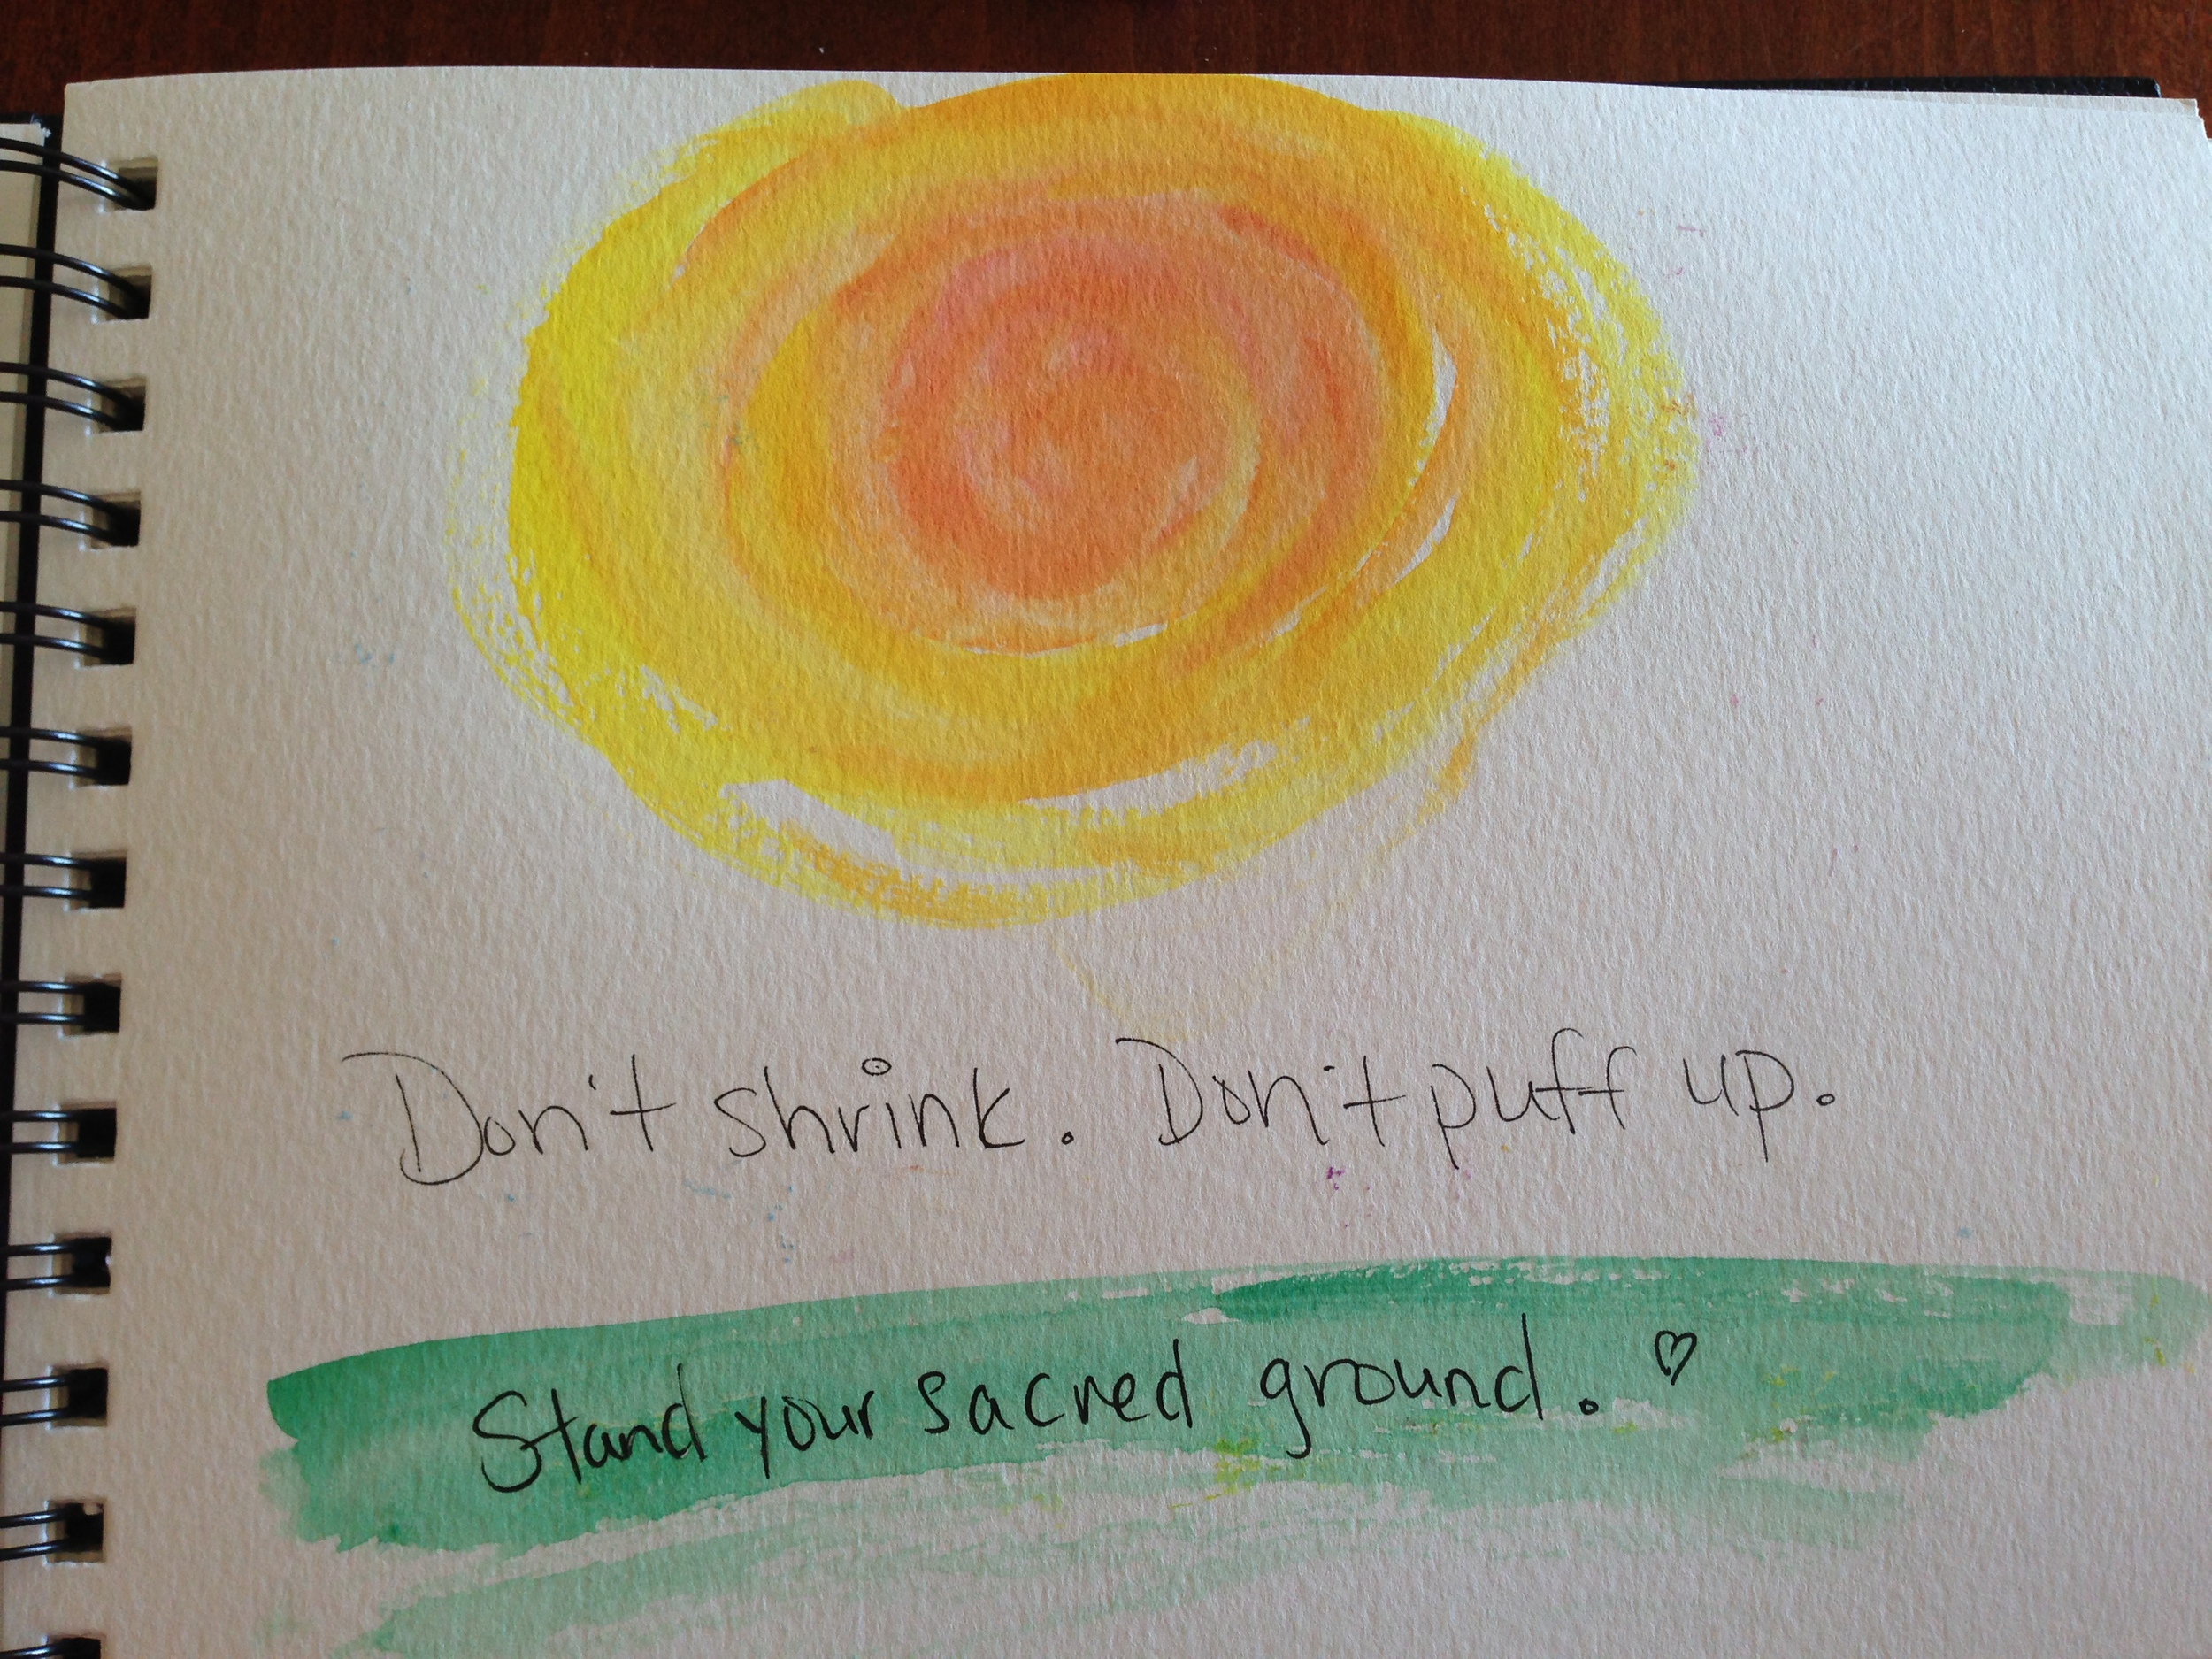 Don't shrink. Don't puff up.
Stand your sacred ground. ♡